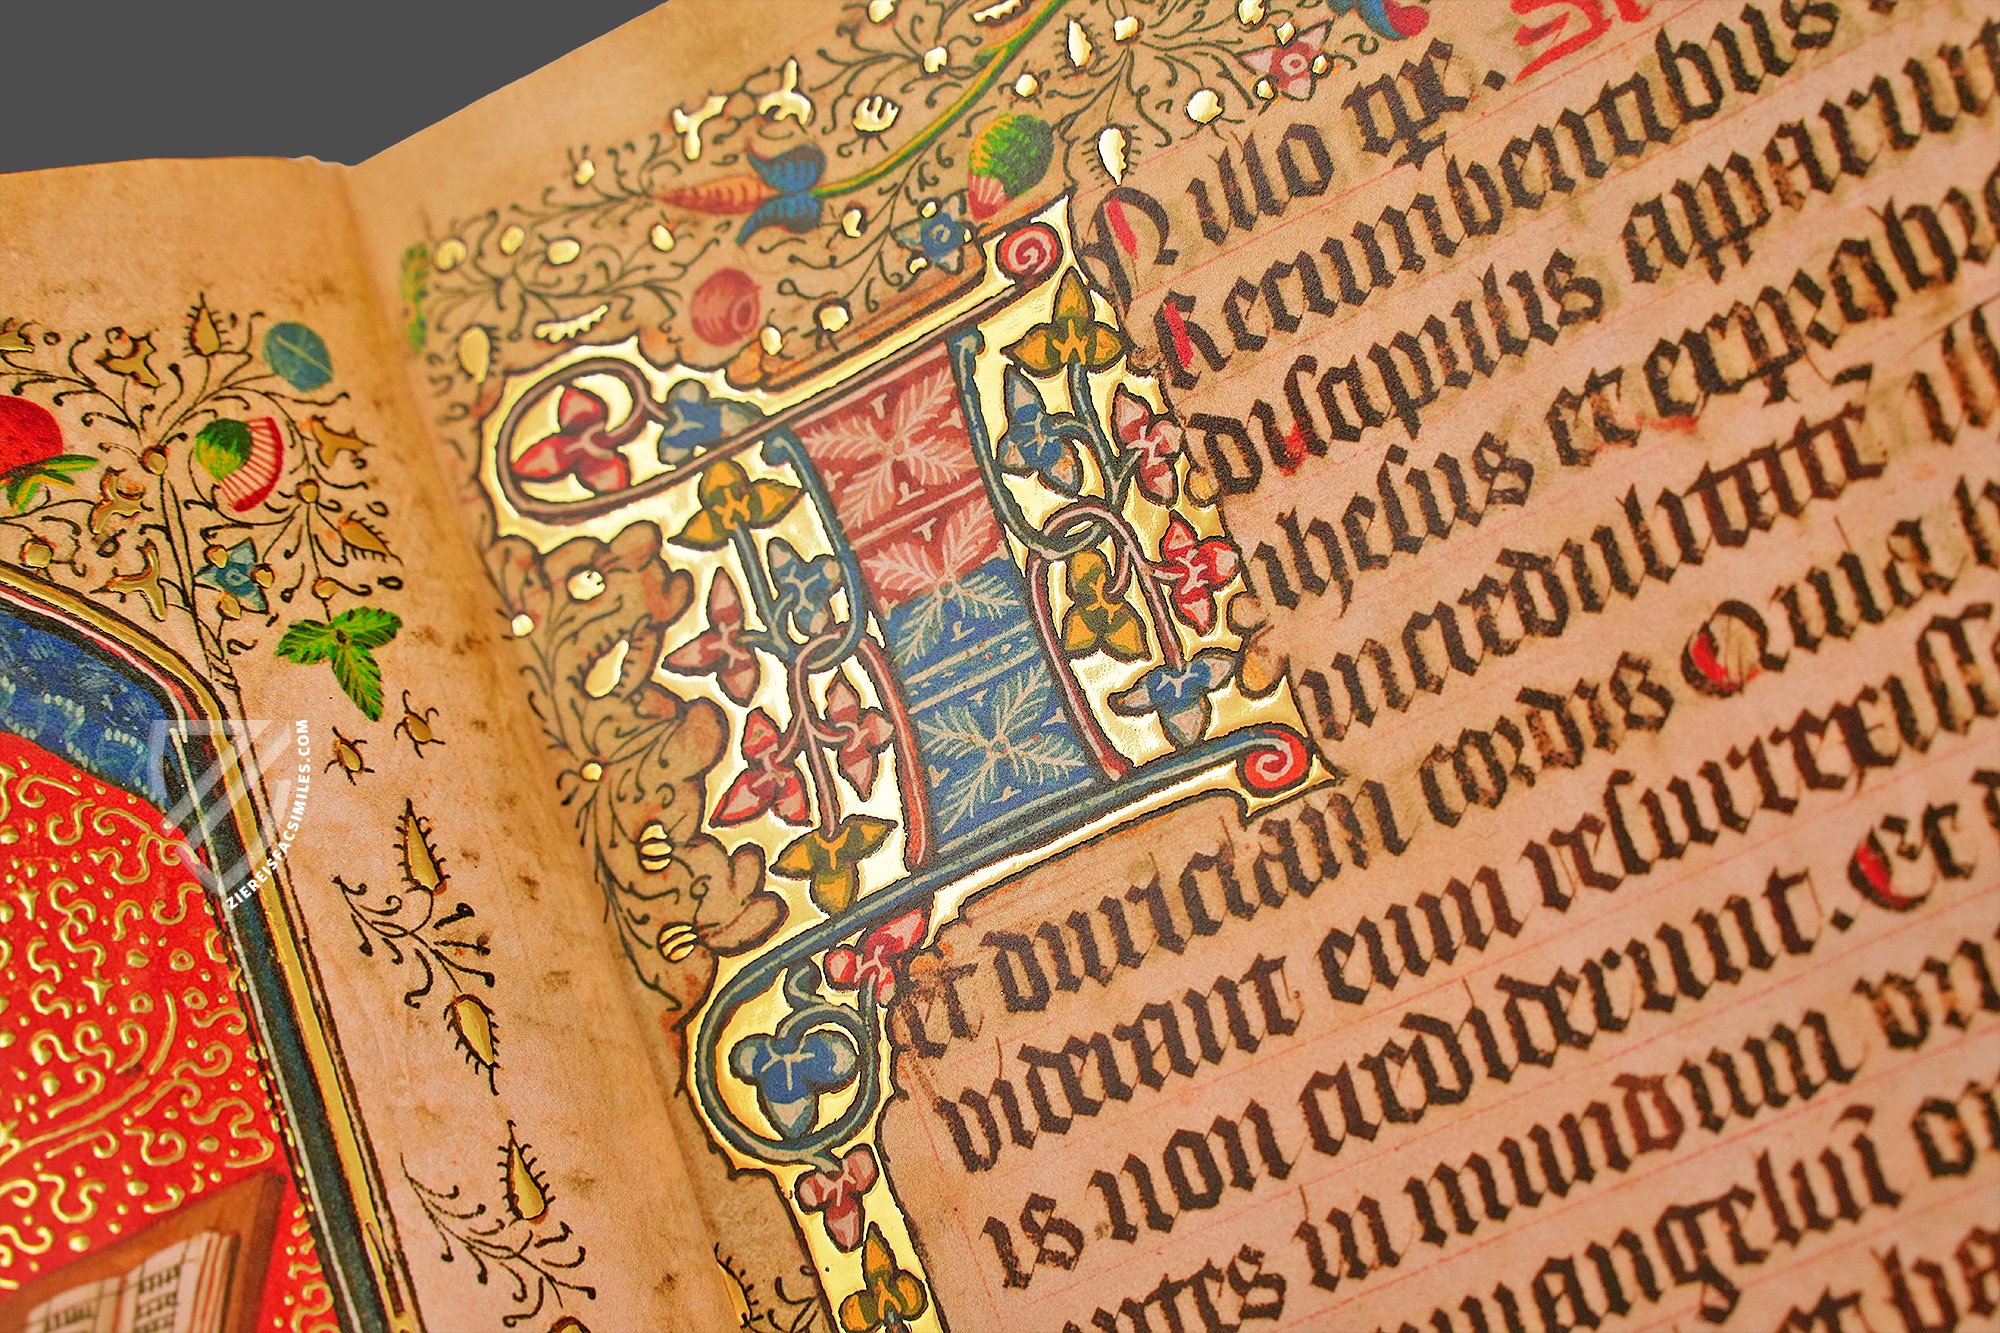 N illo tpr. S
Recumbentibus
discipulis apparuit
ihesus et exprobavit
incredulitatē ill
et duriciam cordis Quia h
viderant eum resurrexiss
is non crediderunt. Et d
in mundum
euangeliū
et
ZIEREISFACSIMILES.COM